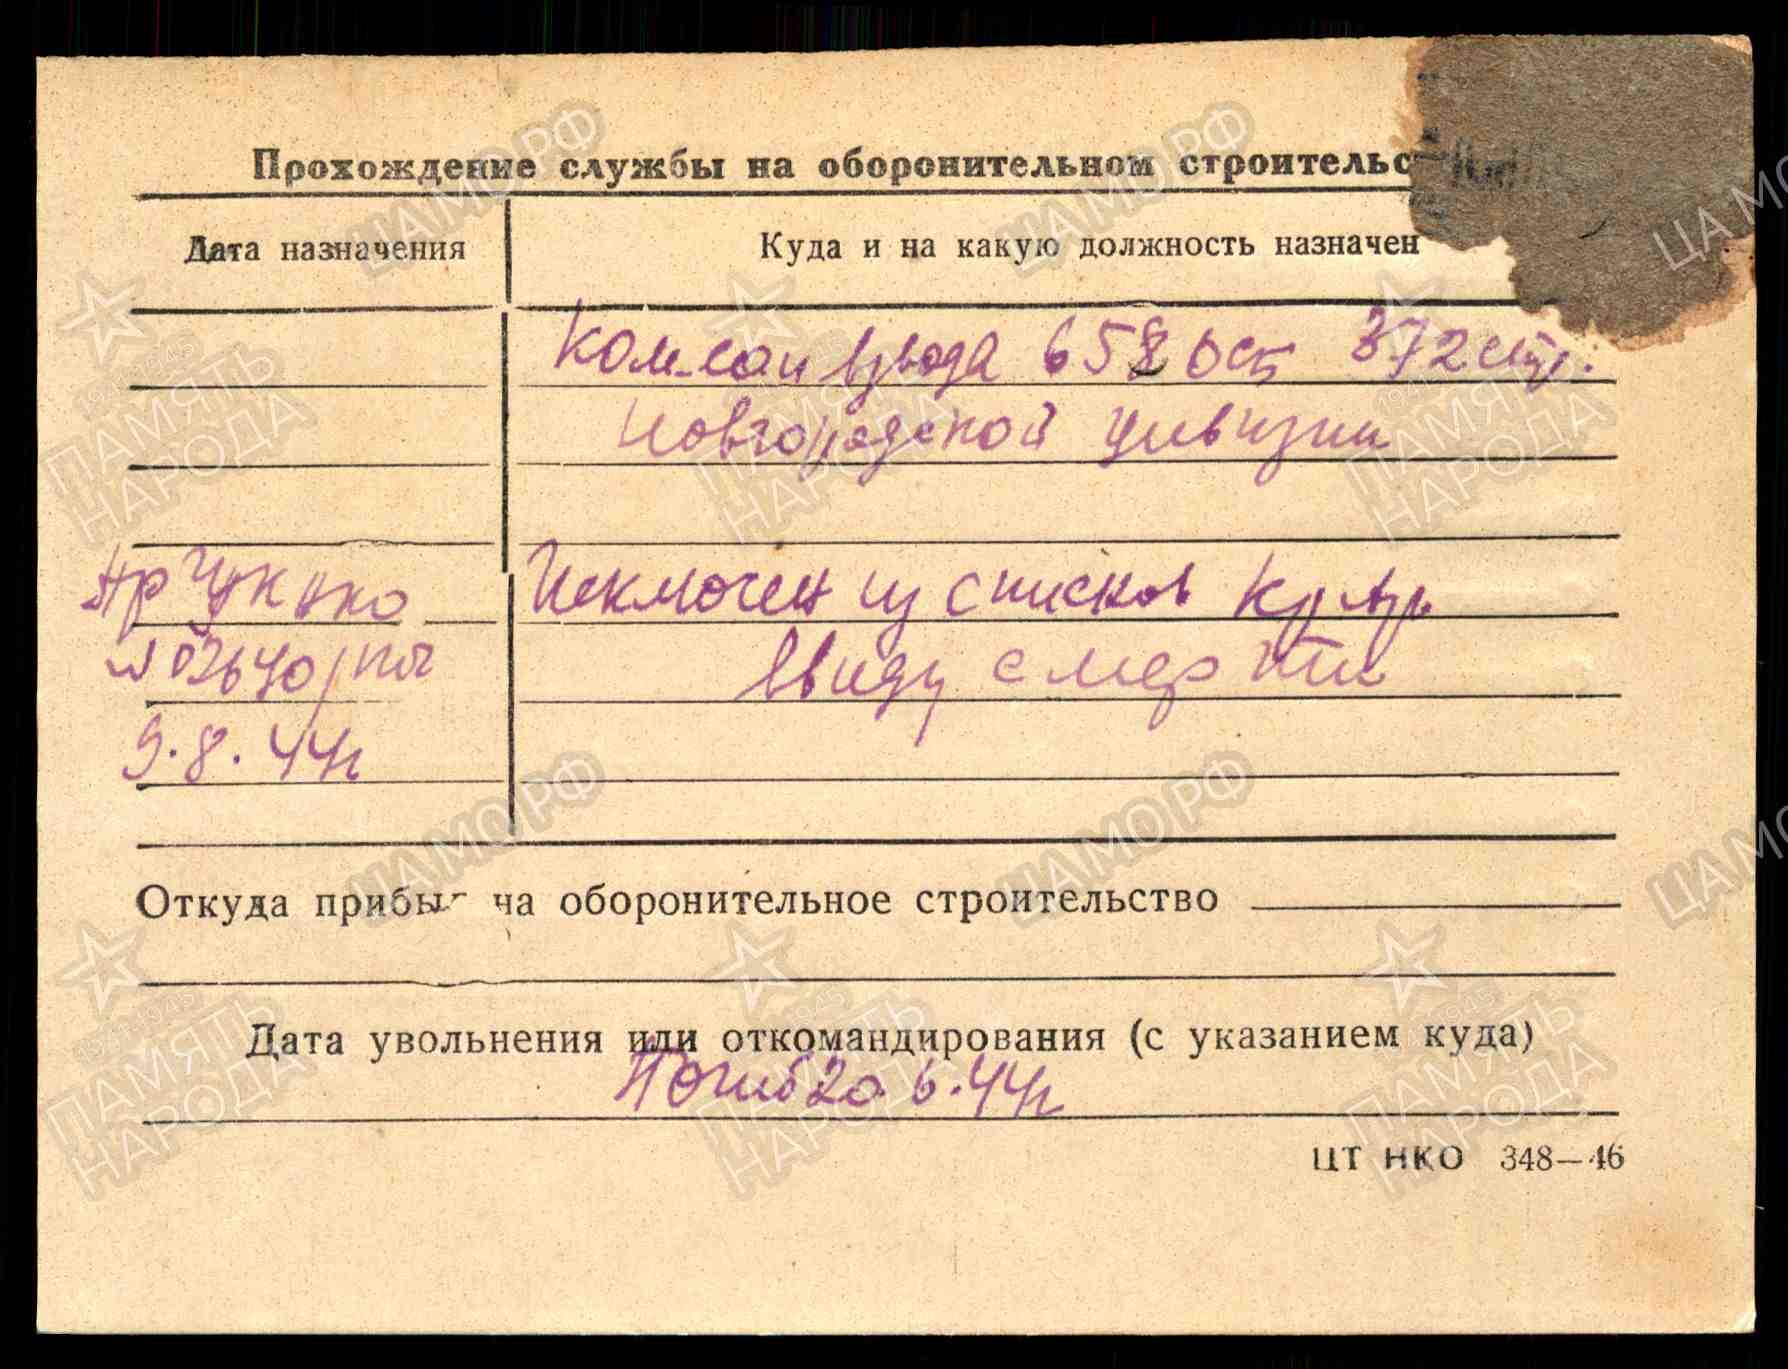 Прохождение службы на оборонительном строительс
Дата назначения
Куда и на какую должность назначен
Ком-сан взвода 658 оск 372 стр.
Новгородской дивизии
Пр ГУК НКО
Исключен из списков Кр Ар.
№ 02640/пог
ввиду смерти
9.8.44г
Откуда прибыл на оборонительное строительство
Дата увольнения или откомандирования (с указанием куда)
Погиб 20.6.44г
ЦТ НКО 348—46
ЦАМО.РФ
1941-1945
ПАМЯТЬ
НАРОДА